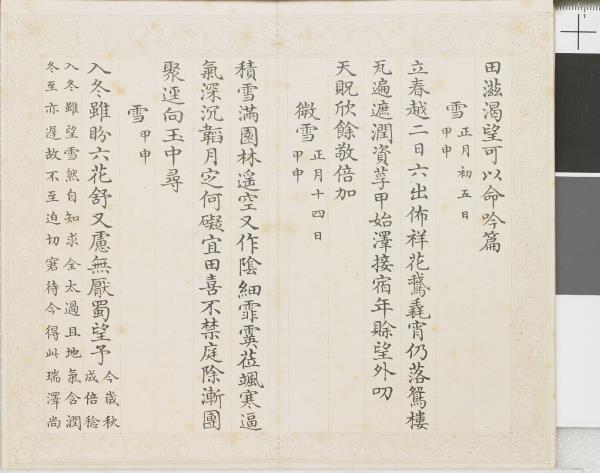 田滋渴望可以命吟篇
雪 正月初五日
甲申
立春越二日六出佈祥花鵞毳宵仍落鴛樓
瓦遍遮潤資莩甲始澤接宿年賖望外叨
天貺欣餘敬倍加
微雪 正月十四日
甲申
積雪滿園林遥空又作陰細霏霙莅颯寒逼
氣深沉韜月㝎何礙宜田喜不禁庭除漸團
聚逕向玉中尋
雪 甲申
入冬雖盼六花舒又慮無厭蜀望予 今歲秋
成倍稔
入冬雖望雪然自知求全太過且地氣含潤
冬至亦遲故不至迫切窘待今得此瑞澤尚